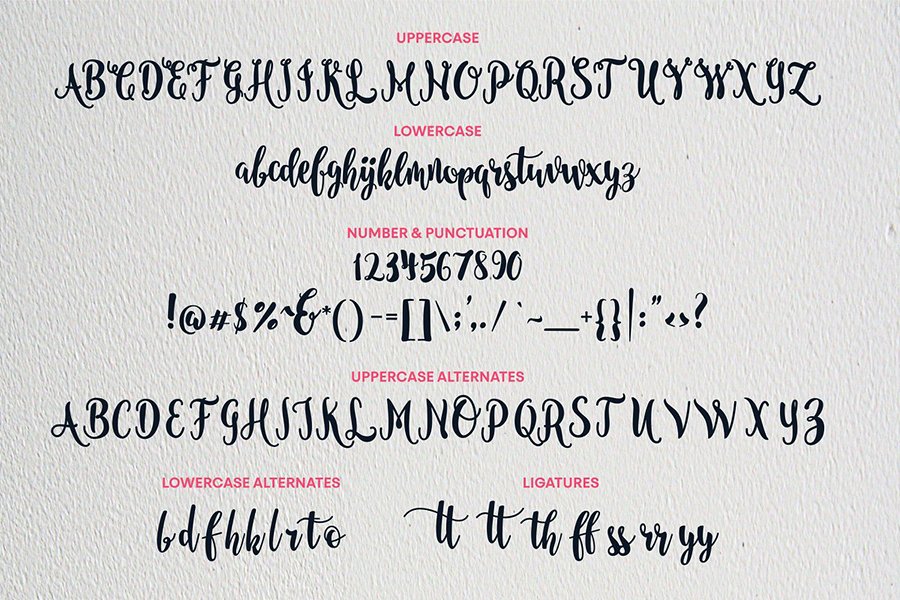 UPPERCASE
ABCDEFGHIJKLMNOPQRSTUVWXYZ
LOWERCASE
abcdefghijklmnopqrstuvwxyz
NUMBER & PUNCTUATION
1234567890
!@#$%^&*()-=[]\;',./`~_+{}|:"<>?
UPPERCASE ALTERNATES
ABCDEFGHIJKLMNOPQRSTUVWXYZ
LOWERCASE ALTERNATES
bdfhklrto
LIGATURES
tt tt th ff ss rr yy